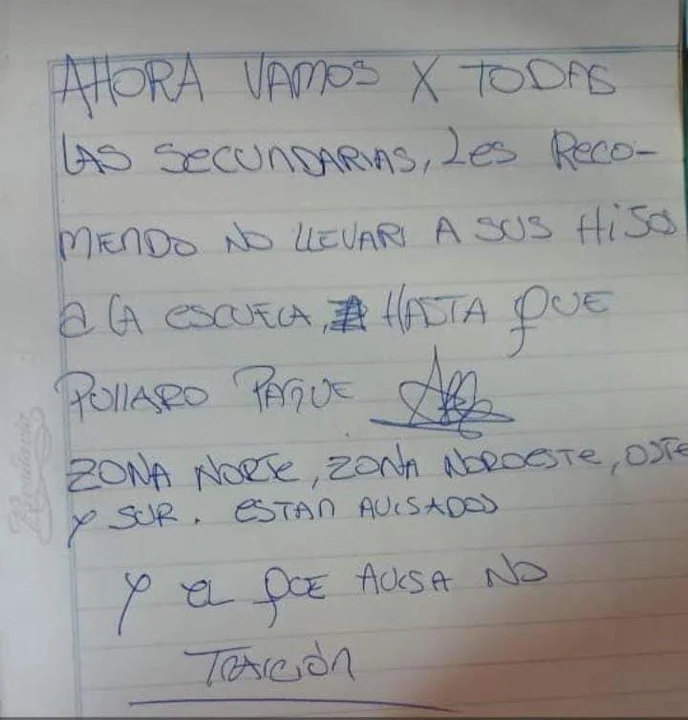 AHORA VAMOS X TODAS
LAS SECUNDARIAS, LES RECO-
MIENDO NO LLEVAR A SUS HIJOS
A LA ESCUELA, HASTA QUE
PULLARO PAGUE
ZONA NORTE, ZONA NOROESTE, OSTE
Y SUR. ESTAN AVISADOS
Y EL QUE AVISA NO
TRAICIÓN
Rivadavia